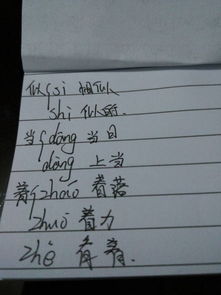 似{sì 相似
shì 似的
当{dāng 当日
dàng 上当
着{zháo 着落
zhuó 着力
zhe 看着.